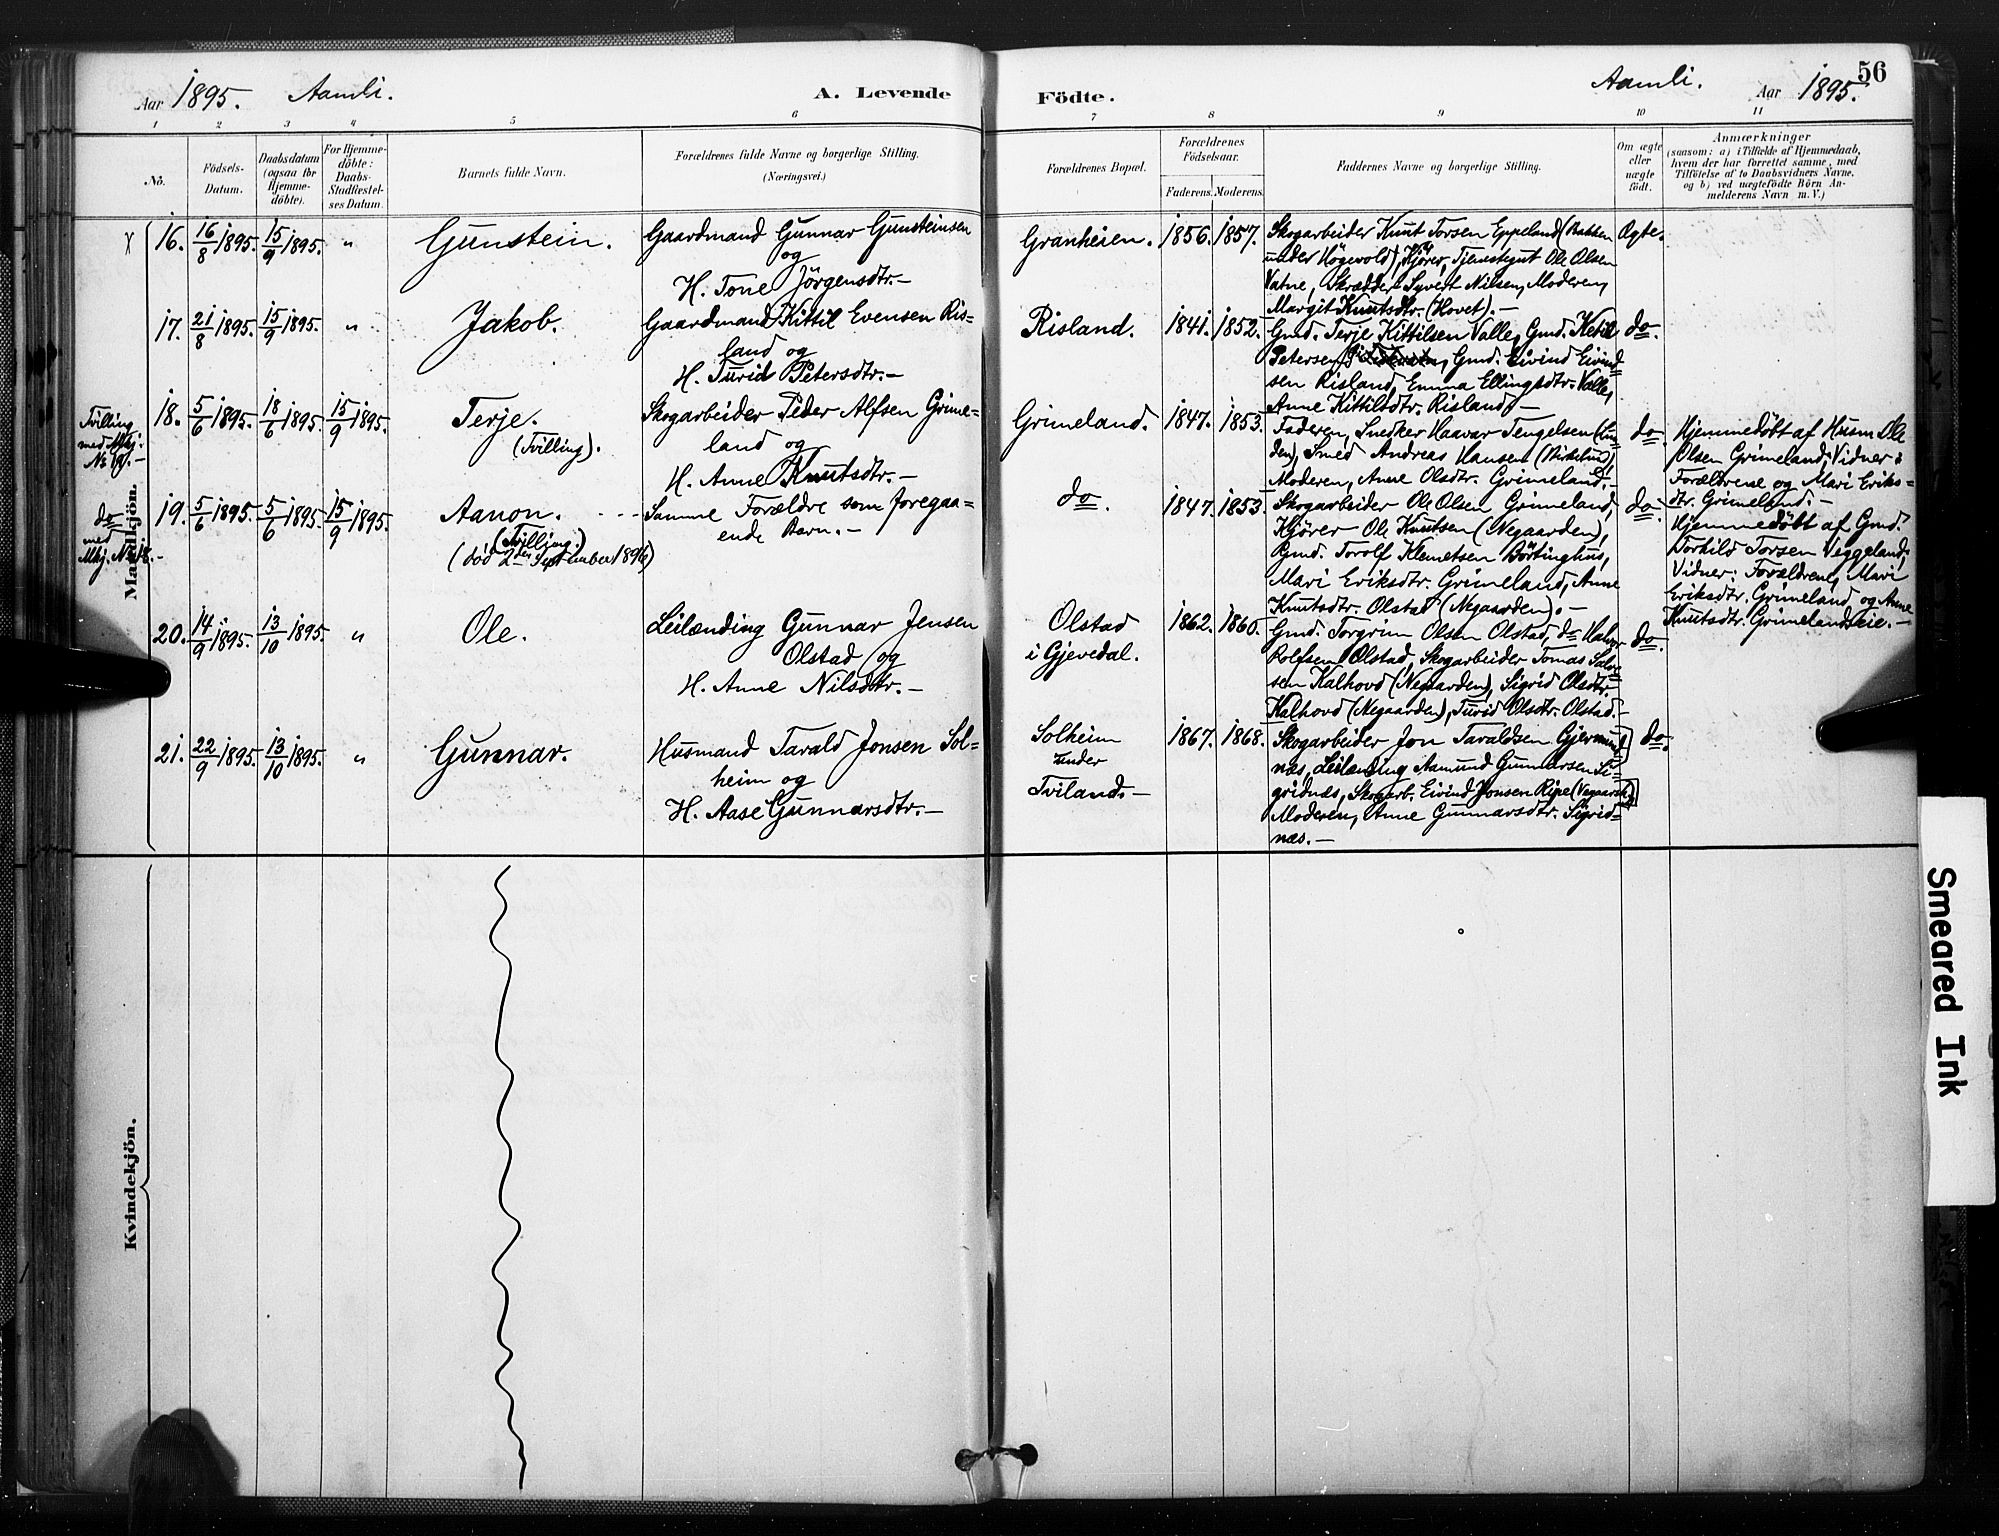 Aar 1895. Aamli. A. Levende Födte. Aamli. Aar 1895. 56
1 2 3 4 5 6 7 8 9 10 11
No.
Födsels-
Datum.
Daabsdatum
(ogsaa for
Hjemme-
döbte).
For Hjemme-
döbte:
Daabs-
Stadfæstel-
ses Datum.
Barnets fulde Navn.
Forældrenes fulde Navne og borgerlige Stilling.
(Næringsvei.)
Forældrenes Bopæl.
Forældrenes
Födselsaar.
Faderens. Moderens.
Faddernes Navne og borgerlige Stilling.
Om ægte
eller
uægte
födt.
Anmærkninger
(saasom: a) i Tilfælde af Hjemmedaab,
hvem der har forrettet samme, med
Tilföielse af to Daabsvidners Navne,
og b) ved uægtefödte Börn An-
melderens Navn m. V.)
Mandkjön.
X 16. 16/8 1895. 15/9 1895. "
Gunstein.
Gaardmand Gunnar Gunsteinsen
og
H. Tone Jörgensdtr.—
Granheien. 1856. 1857.
Skogarbeider Knut Torsen Eppeland (Bakken
under Högevold), Kjörer, Tjenestegut Ole Olsen
Vatne, Skrædder Syvert Nilsen, Moderen,
Margit Knutsdtr. (Hovet).—
Ægte.
17. 21/8 1895. 15/9 1895. "
Jakob.
Gaardmand Kittil Evensen Ris-
land og
H. Turid Petersdtr.—
Risland. 1841. 1852.
Gmd. Terje Kittilsen Valle, Gmd. Ketil
Petersen, Gmd. Eivind Eivind
sen Risland, Emma Ellingsdtr. Valle,
Anne Kittilsdtr. Risland.—
do.
Tvilling
med Mkj.
No 19.—
18. 5/6 1895. 18/6 1895. 15/9 1895.
Terje.
(Tvilling).
Skogarbeider Peder Alfsen Grime-
land og
H. Anne Knutsdtr.—
Grimeland. 1847. 1853.
Faderen, Snedker Haavar Tengelsen (Lun
den), Smed Andreas Hansen (Birkelund),
Moderen, Anne Olsdtr. Grimeland.—
do.
Hjemmedöbt af Husm. Ole
Olsen Grimeland; Vidner:
Forældrene og Mari Eriks-
dtr. Grimeland.—
do
med
Mkj. No 18.—
19. 5/6 1895. 5/6 1895. 15/9 1895.
Aanon.
(Tvilling.)
(död 2den September 1896)
Samme Forældre som foregaa-
ende Barn.—
do. 1847. 1853.
Skogarbeider Ole Olsen Grimeland,
Kjörer Ole Knutsen (Negaarden),
Gmd. Torolf Klemetsen Börtinghus,
Mari Eriksdtr. Grimeland, Anne
Knutsdtr. Olstad (Negaarden).—
do.
Hjemmedöbt af Gmd.
Torkild Torsen Veggeland;
Vidner: Forældrene, Mari
Eriksdtr. Grimeland og Anne
Knutsdtr. Grimelandseie.—
20. 14/9 1895. 13/10 1895. "
Ole.
Leilænding Gunnar Jensen
Olstad og
H. Anne Nilsdtr.—
Olstad
i Gjevedal.
1862. 1860.
Gmd. Torgrim Olsen Olstad, do Halvor
Rolfsen Olstad, Skogarbeider Tomas Salve
sen Kalhovd (Negaarden), Sigrid Olsdtr.
Kalhovd (Negaarden), Turid Olsdtr. Olstad.—
do.
21. 22/9 1895. 13/10 1895. "
Gunnar.
Husmand Tarald Jonsen Sol-
heim og
H. Aase Gunnarsdtr.—
Solheim
under
Tviland.—
1867. 1868.
Skogarbeider Jon Taraldsen Gjermund
næs, Leilænding Aamund Gunnarsen Si-
gridnæs, Skogarb. Eivind Jonsen Ripe
Moderen, Anne Gunnarsdtr. Sigrid-
næs.—
do.
Kvindekjön.
Smeared Ink